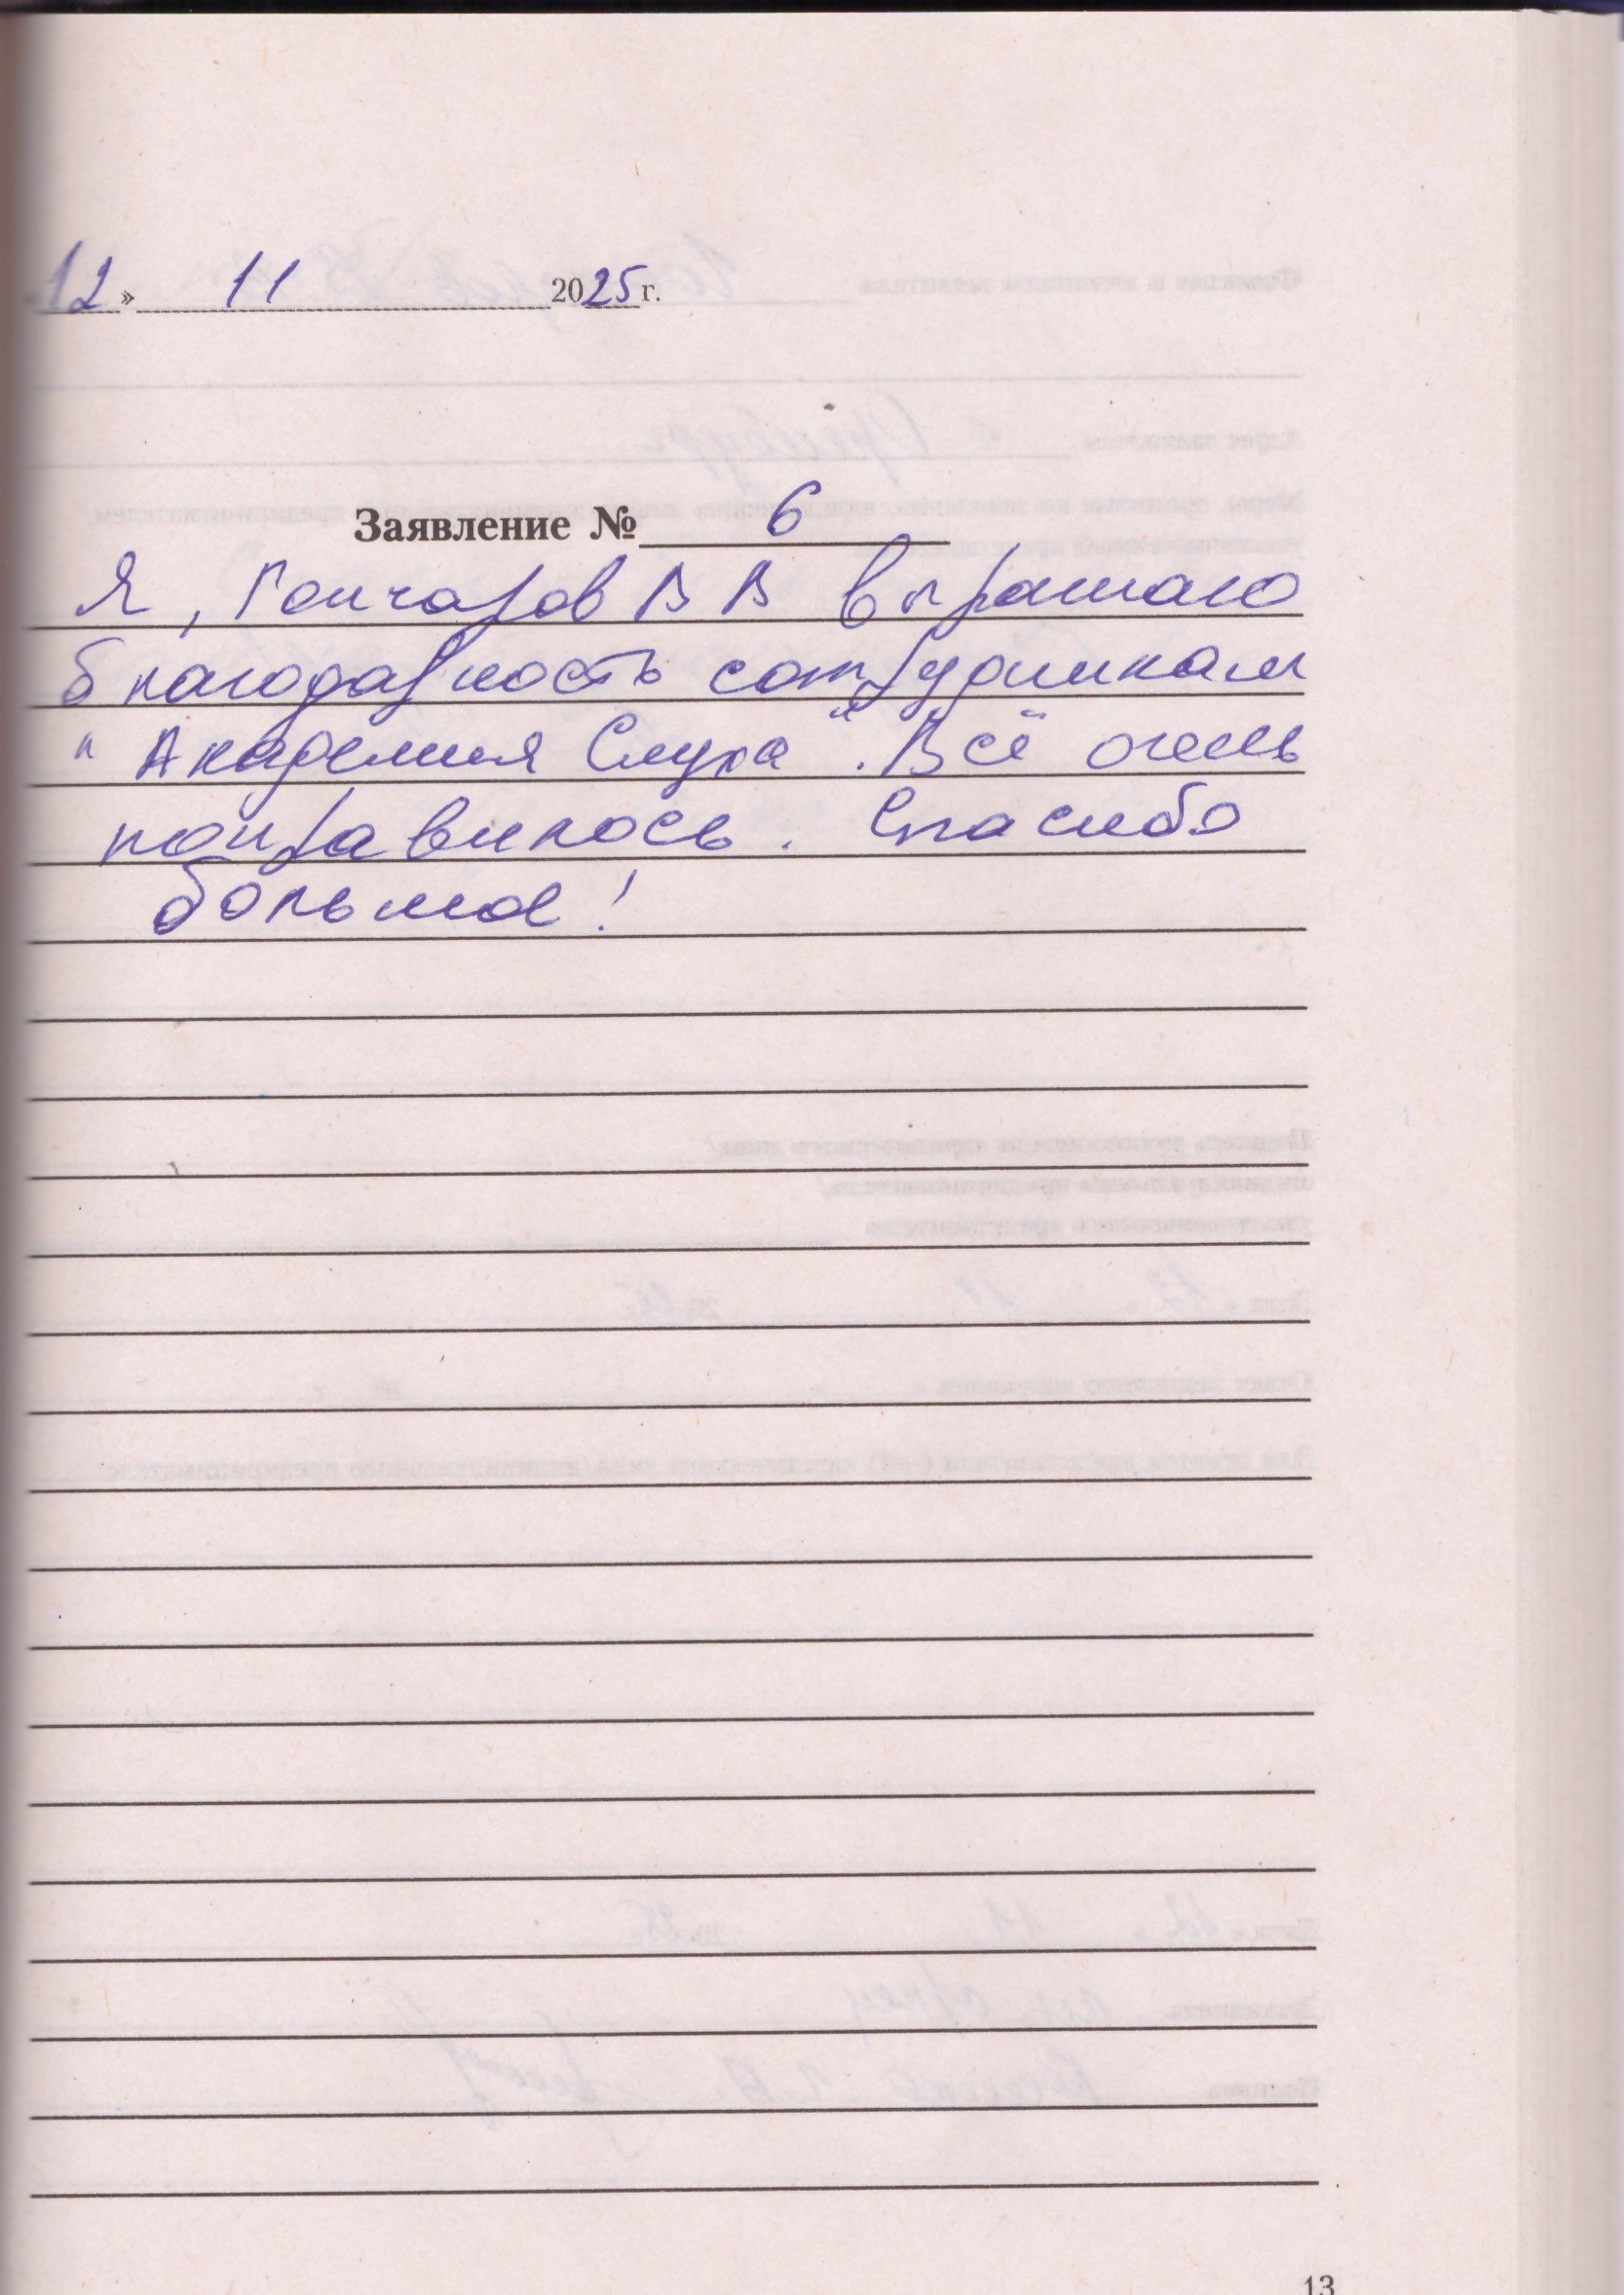 12 » 11 2025 г.
Заявление № 6
Я, Гончаров В В выражаю
благодарность сотрудникам
"Академия Слуха". Всё очень
понравилось. Спасибо
большое!
13